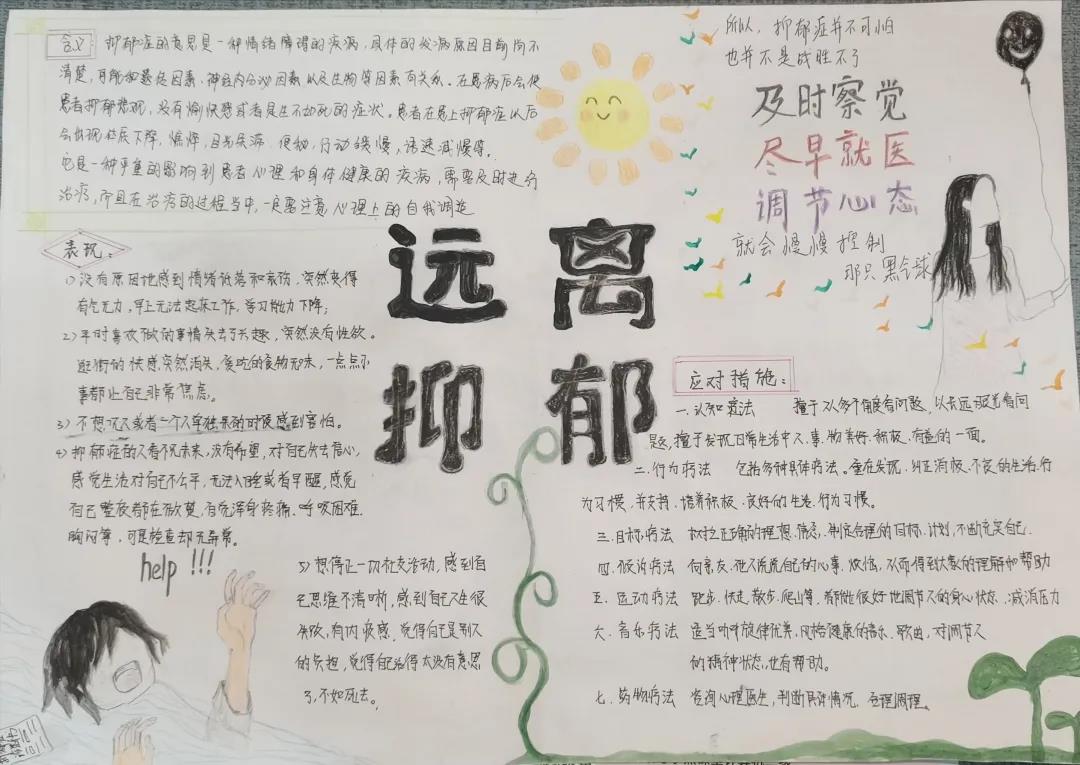 含义: 抑郁症的意思是一种情绪障碍的疾病,具体的发病原因目前尚不
清楚,可能和遗传因素,神经内分泌因素以及生物等因素有关系.在患病后会使
患者抑郁悲观,没有愉快感或者是生不如死的症状。患者在患上抑郁症以后
会出现体质下降,憔悴,目光呆滞,便秘,行动缓慢,语速减慢等.
它是一种严重的影响到患者心理和身体健康的疾病,需要及时进行
治疗,而且在治疗的过程当中,一定要注意心理上的自我调造
所以,抑郁症并不可怕
也并不是战胜不了
及时察觉
尽早就医
调节心态
就会慢慢控制
那只黑气球
远离
抑郁
表现:
1)没有原因地感到情绪低落和哀伤,突然变得
有气无力,早上无法起床工作,学习能力下降;
2)平时喜欢做的事情失去了兴趣,突然没有性欲.
逛街的快感突然消失,爱吃的食物无味,一点点小
事都让自己非常焦虑。
3)不想见人或者一个人单独呆的时候感到害怕。
4)抑郁症的人看不见未来,没有希望,对自己失去信心,
感觉生活对自己不公平,无法入睡或者早醒,感觉
自己整夜都在做梦,自觉浑身疼痛.呼吸困难.
胸闷等,可是检查却无异常。
help !!!
5)想停止一切社交活动,感到自
己思维不清晰,感到自己人生很
失败,有内疚感.觉得自己是别人
的负担,觉得自己活得太没有意思
了,不如死去。
应对措施:
一.认知疗法 擅于从多个角度看问题,以长远眼光看问
题,擅于发现日常生活中人.事.物美好.积极.有益的一面。
二.行为疗法 包括多种具体疗法.重在发现.纠正消极.不良的生活.行
为习惯,并支持.培养积极.良好的生活.行为习惯。
三.目标疗法 树立正确的理想.信念.制定合理的目标.计划,不断充实自己.
四.倾诉疗法 向亲友.他人诉说自己的心事.烦恼,从而得到大家的理解和帮助
五.运动疗法 跑步.快走.散步.爬山等.都能很好地调节人的身心状态.减消压力
六.音乐疗法 适当听听旋律优美.风格健康的音乐.歌曲,对调节人
的精神状态,也有帮助.
七.药物疗法 咨询心理医生,判断具体情况.合理调理。